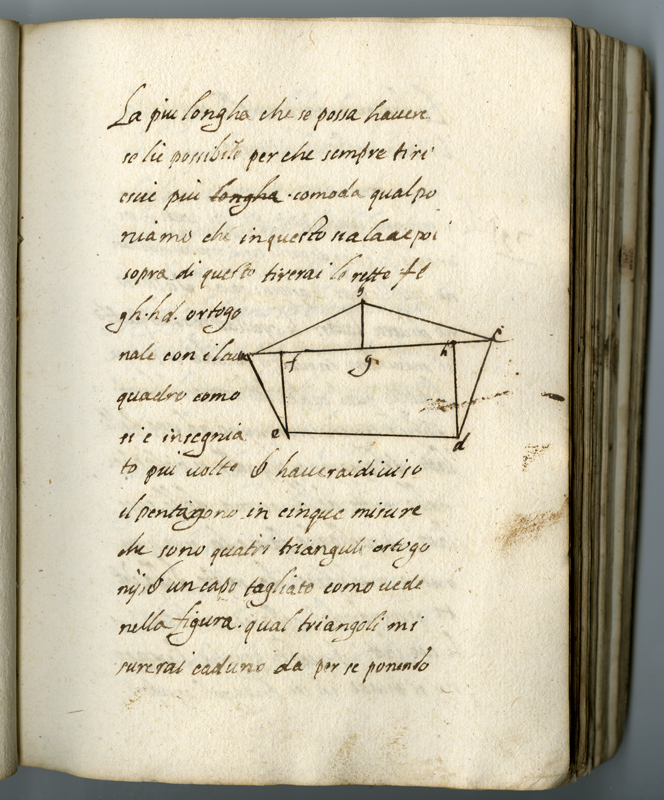 La piu longha che se possa havere
se lie possibile perche sempre tiri
esuie piu longha comoda qual po
niamo che in questo sia la ac e poi
sopra di questo tirerai le rette fe
gh. hd. ortogo
nale con il
quadro como
si e insegnia
b
a
f
g
h
c
e
d
to piu volte & haverai diviso
il pentagono in cinque misure
che sono quatri trianguli ortogo
nij & un capo tagliato como vede
nella figura. qual triangoli mi
surerai caduno da per se ponendo